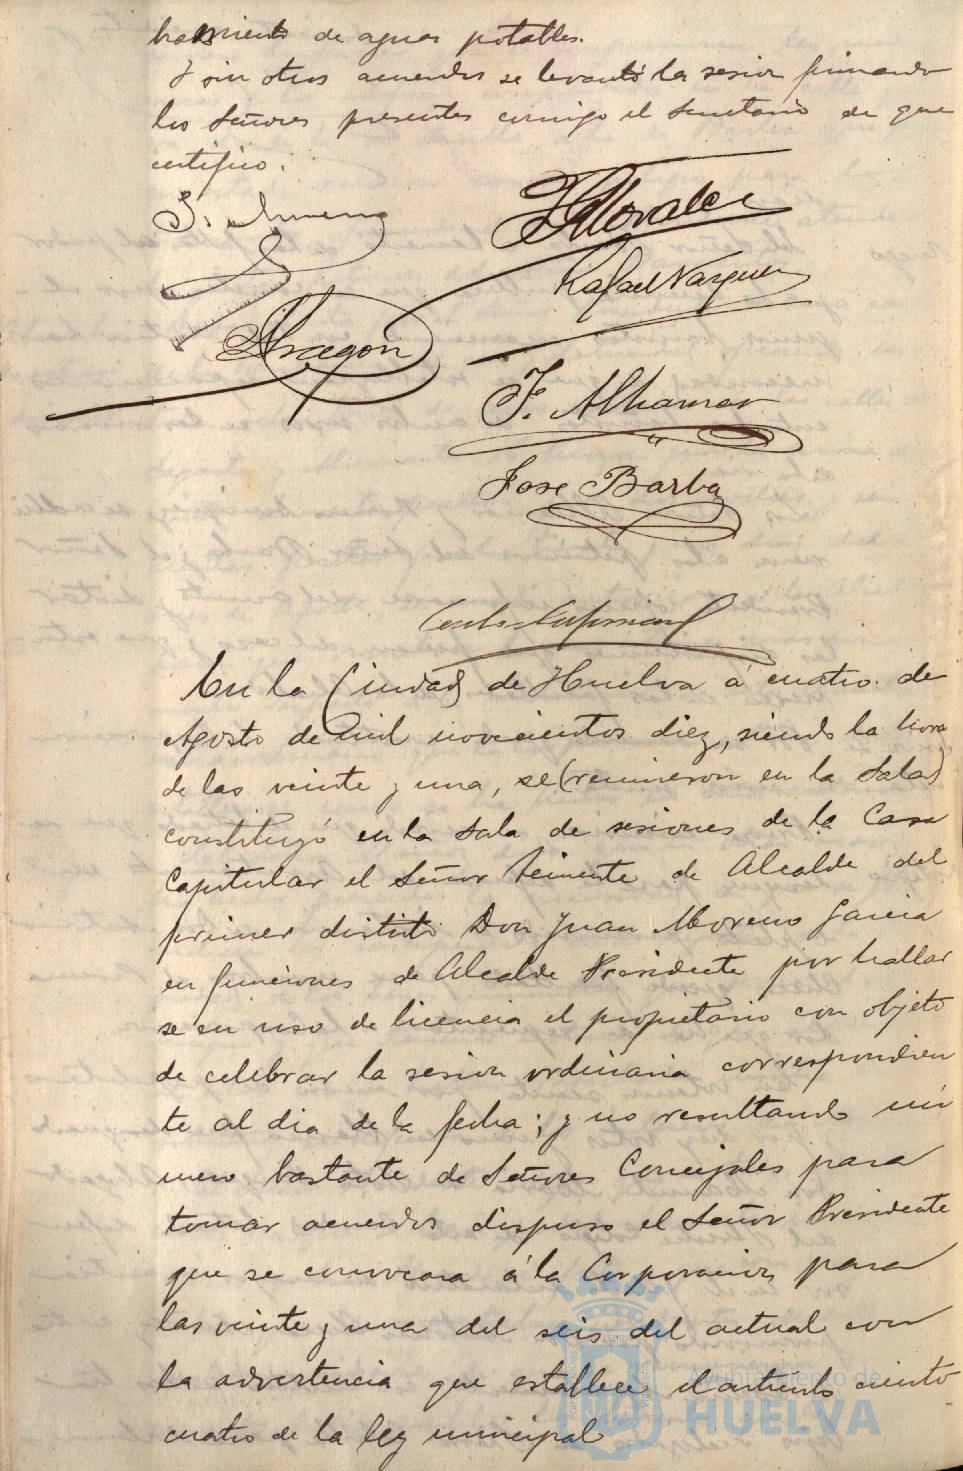 hamiento de aguas potables.
Y sin otros acuerdos se levantó la sesion firmando
los Señores presentes conmigo el Secretario de que
certifico.
J. Jimeno
Morales
Rafael Vazquez
Aragón
F. Alhamar
Jose Barba
En la Ciudad de Huelva á cuatro de
Agosto de mil novecientos diez, siendo la hora
de las veinte y una, se (reunieron en la Sala)
constituyó en la Sala de sesiones de la Casa
Capitular el Señor Teniente de Alcalde del
primer distrito Don Juan Moreno Garcia
en funciones de Alcalde Presidente por hallar
se en uso de licencia el propietario con objeto
de celebrar la sesion ordinaria correspondien
te al dia de la fecha; y no resultando nú
mero bastante de Señores Concejales para
tomar acuerdos dispuso el Señor Presidente
que se convocara á la Corporacion para
las veinte y una del seis del actual con
la advertencia que establece el articulo ciento
cuatro de la ley municipal
Ayuntamiento de
HUELVA